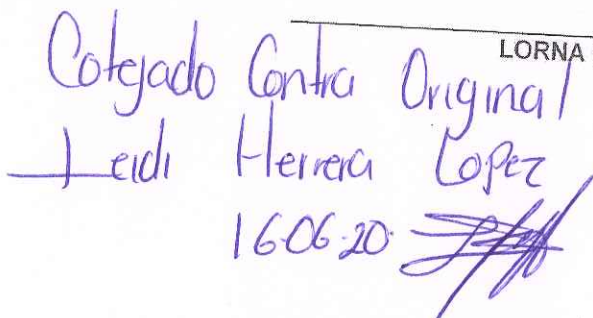 LORNA
Cotejado Contra Original
Leidi Herrera Lopez
16-06-20